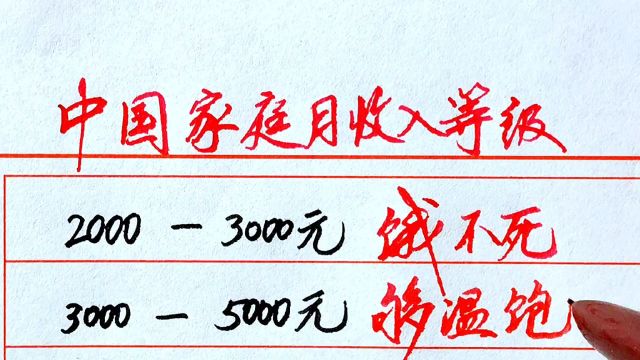 中国家庭月收入等级
2000 — 3000元 饿不死
3000 — 5000元 够温饱